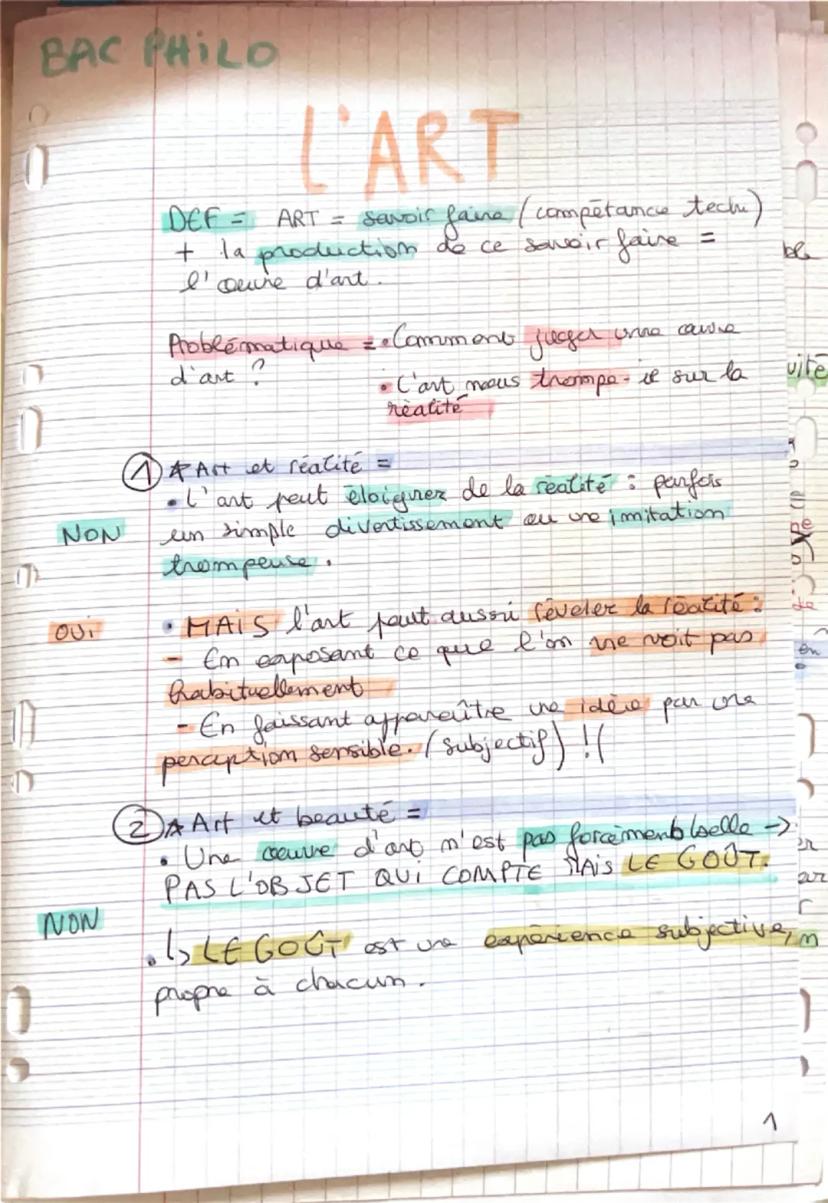 BAC PHILO
L'ART
DEF = ART = savoir faire (compétance tech)
+ la production de ce savoir faire =
l'œuvre d'art.
Problématique = • Comment juger une œuvre
d'art ?
• L'art nous trompe-il sur la
réalité
① * Art et réalité =
• L'art peut éloigner de la réalité : parfois
NON un simple divertissement ou une imitation
trompeuse.
OUI • MAIS l'art peut aussi révéler la réalité :
- En exposant ce que l'on ne voit pas
habituellement
- En faissant apparaître une idée par une
perception sensible. (subjectif) !(
② * Art et beauté =
• Une œuvre d'art n'est pas forcément belle →
PAS L'OBJET QUI COMPTE MAIS LE GOÛT.
NON
• ↳ LE GOÛT est une expérience subjective,
propre à chacun.
1